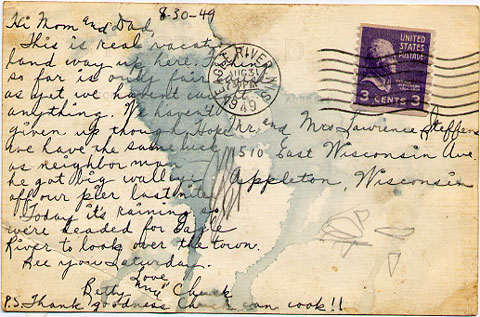 8-30-49
Hi Mom and Dad
This is real vacation
land way up here. Fishing
so far is only fair
as yet we haven't caught
anything. We haven't
given up though. Hope
we have the same luck
as neighbor man
he got big walleye
off our pier last nite
Today it's raining so
were headed for Eagle
River to look over the town.
See you Saturday.
Love
Betty "and" Chuck
P.S. Thank goodness Chuck can cook!!
EAGLE RIVER, WIS.
AUG 31
PM
1949
UNITED
STATES
POSTAGE
3 CENTS 3
Mr. and Mrs Lawrence Steffens
1510 East Wisconsin Ave
Appleton, Wisconsin